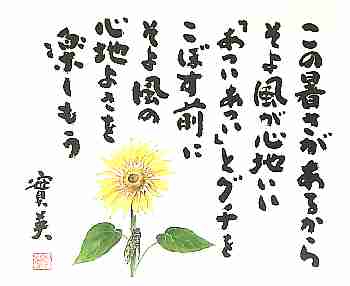 この暑さがあるから
そよ風が心地いい
「あついあつい」とグチを
こぼす前に
そよ風の
心地よさを
楽しもう
實美